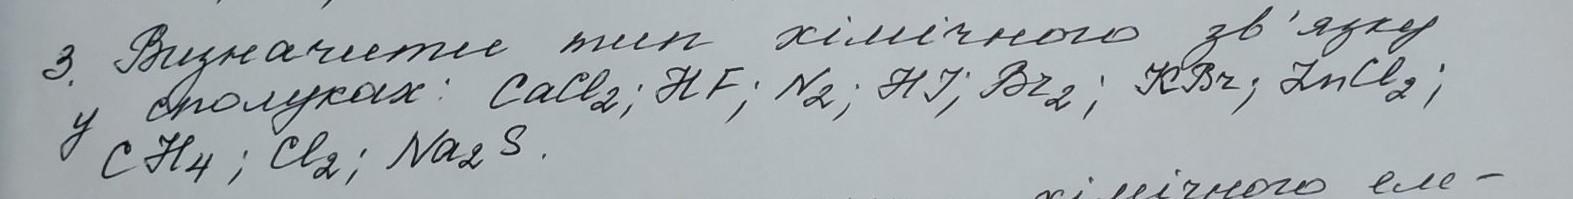 3. Визначити тип хімічного зв'язку
у сполуках: CaCl₂; HF; N₂; HJ; Br₂; KBr; ZnCl₂;
CH₄; Cl₂; Na₂S.
хімічного еле-